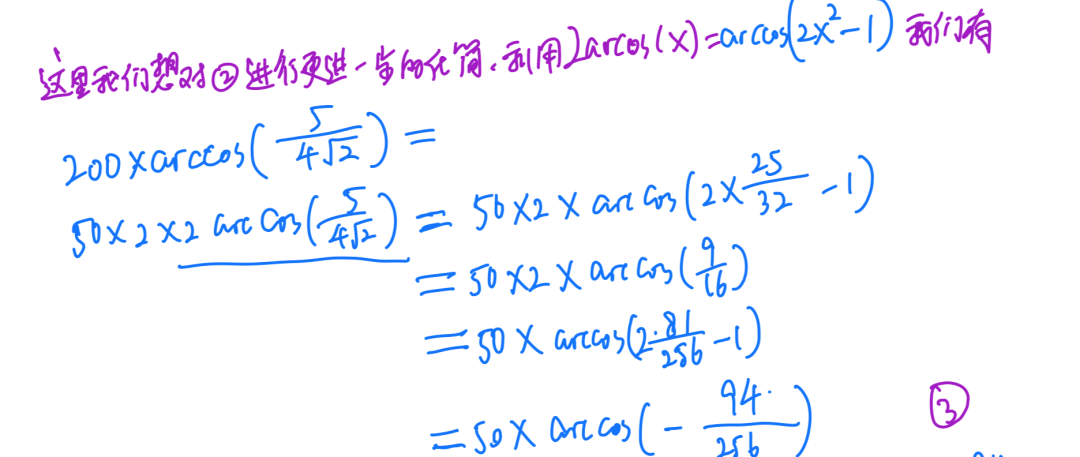 这里我们想对②进行更进一步的化简,利用2arccos(x)=arccos(2x²-1) 我们有
200×arccos(5/(4√2))=
50×2×2 arc cos(5/(4√2)) = 50×2×arc cos(2×25/32 -1)
= 50×2×arc cos(9/16)
= 50×arccos(2·81/256 -1)
= 50×arc cos(-94/256) ③